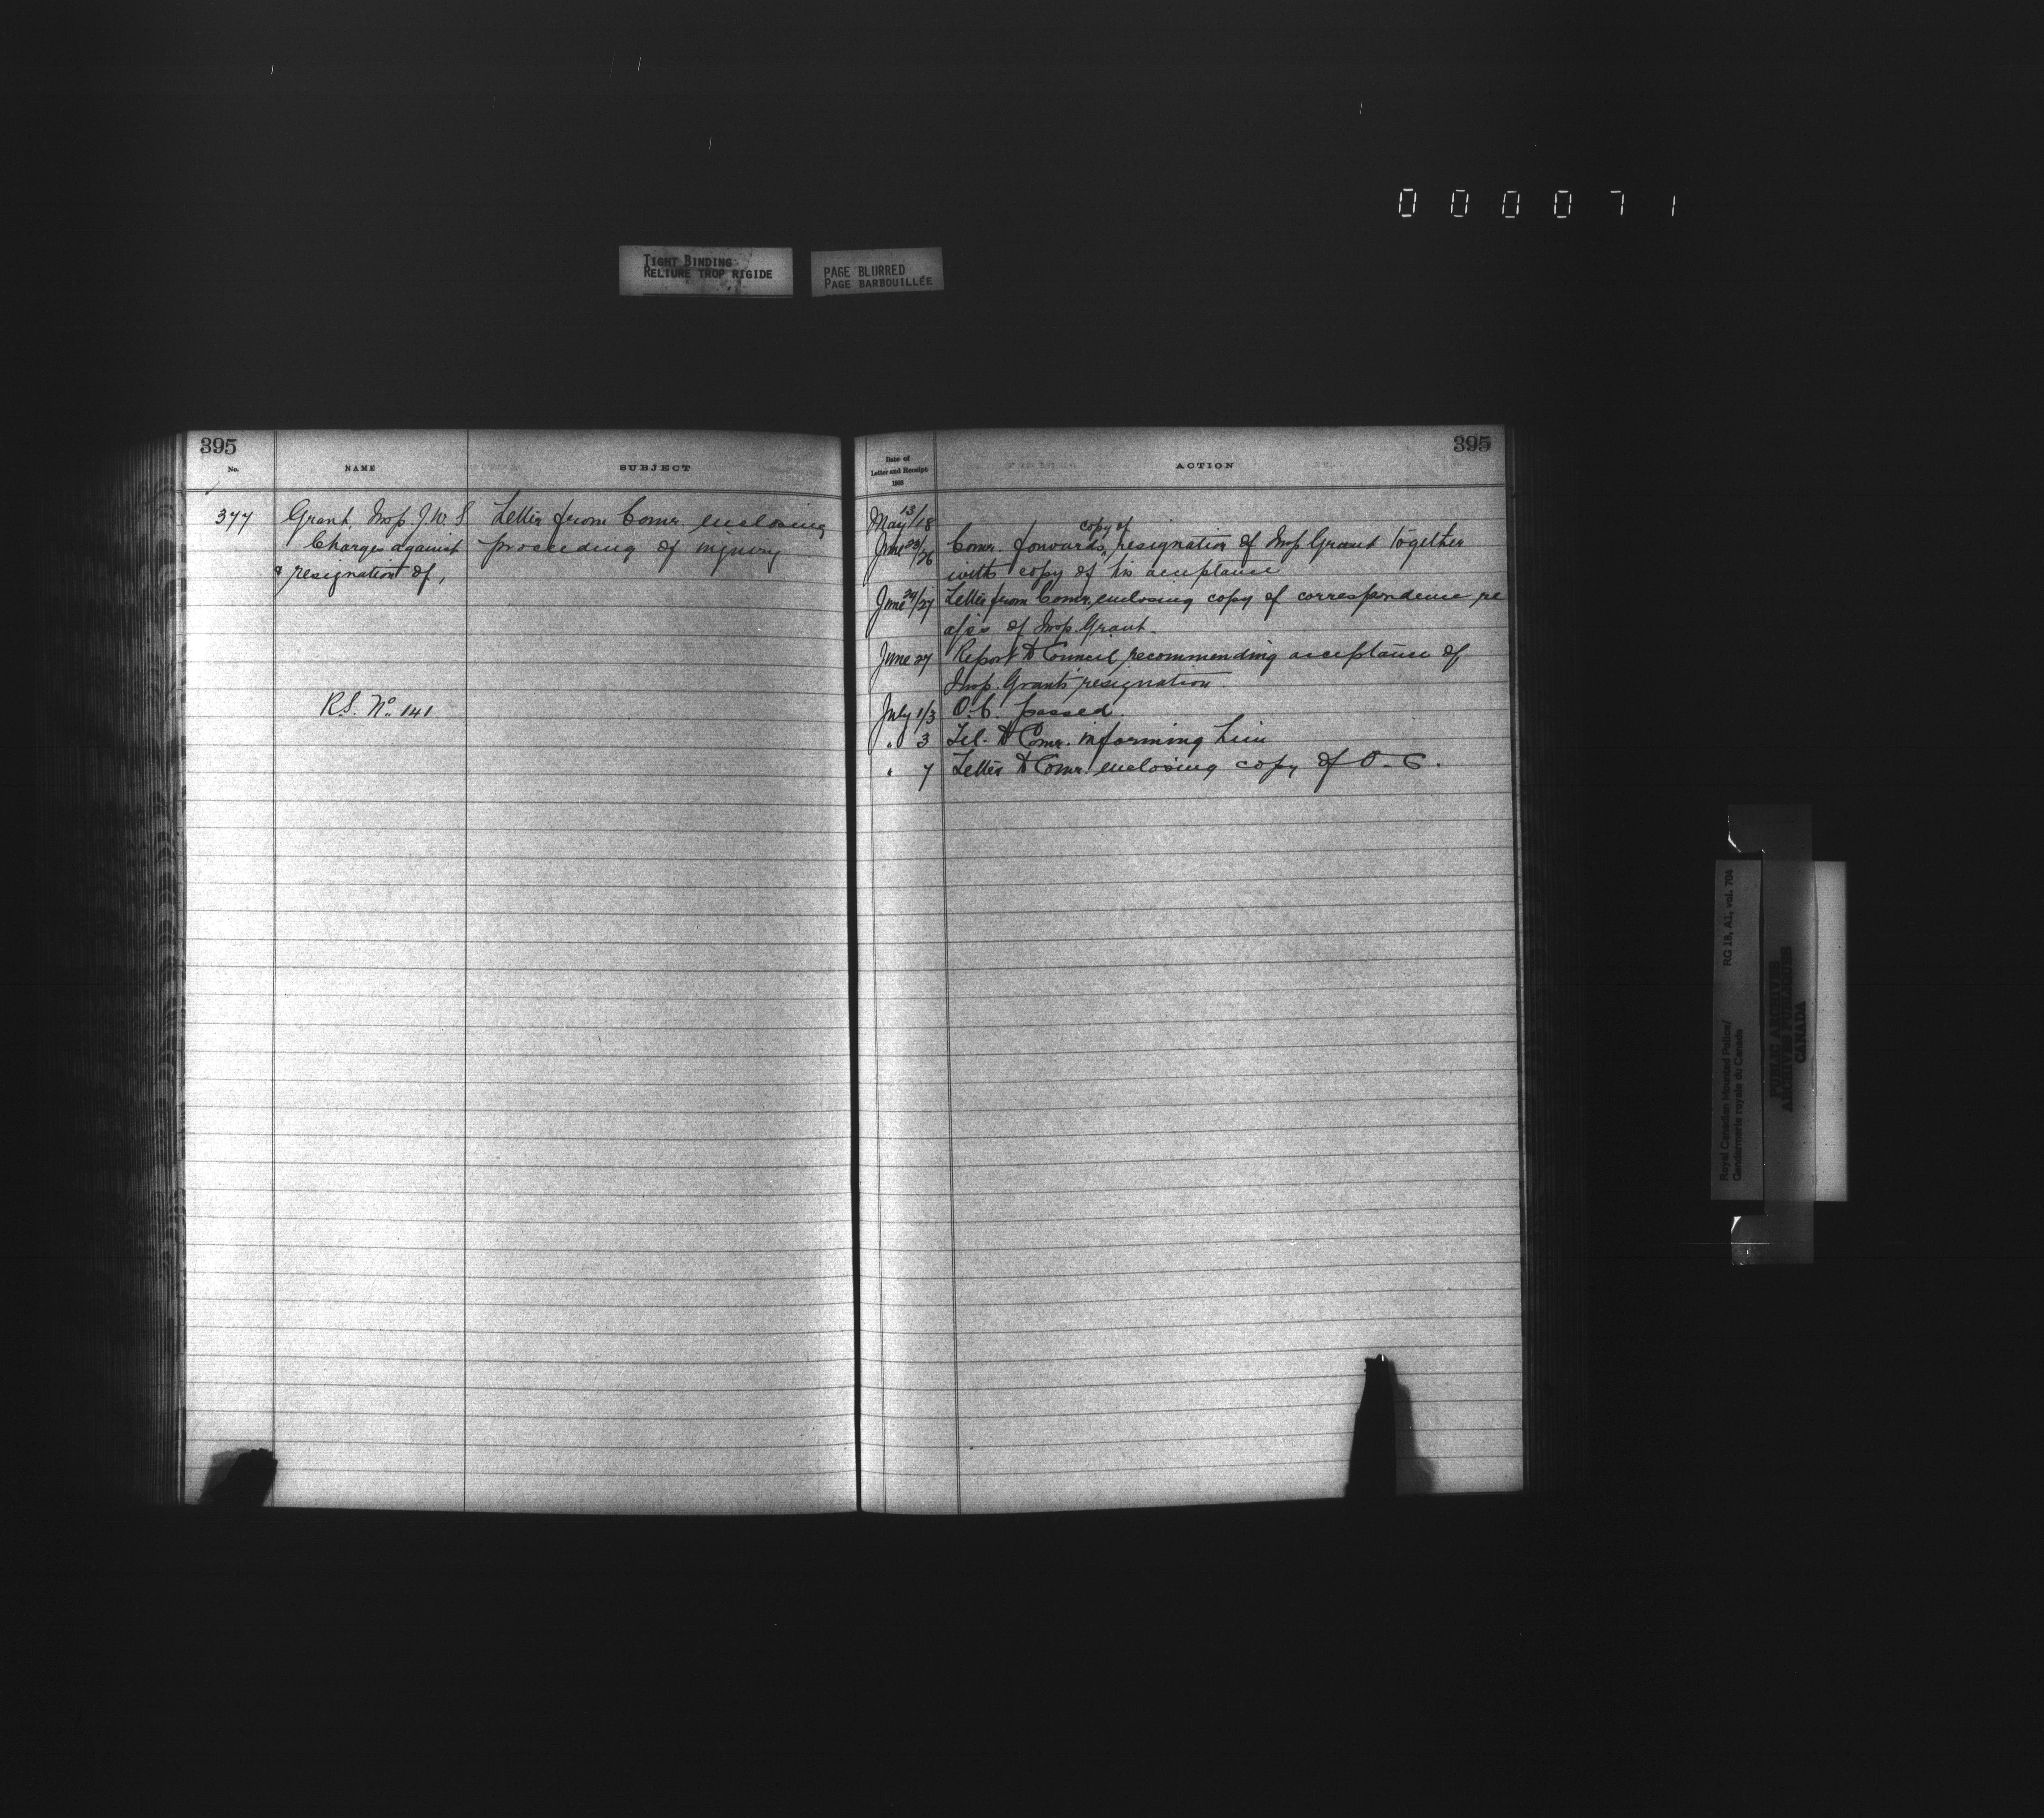 000071
TIGHT BINDING
RELIURE TROP RIGIDE
PAGE BLURRED
PAGE BARBOUILLÉE
395
No.
NAME
SUBJECT
377
Grant, Insp J. W. S.
Charges against
& resignation of,
R.S. No. 141
Letter from Comr. enclosing
proceeding of injury
395
Date of
Letter and Receipt
1903
ACTION
May 13/18
June 23/26 Comr. forwards copy of resignation of Insp Grant together
with copy of his acceptance
June 24/27 Letter from Comr. enclosing copy of correspondence re
of Insp. Grant.
June 27 Report to Council recommending acceptance of
Insp. Grants resignation.
July 1/3 O.C. passed
" 3 Tel. to Comr. informing him
" 7 Letter to Comr. enclosing copy of O. C.
Royal Canadian Mounted Police/
Gendarmerie royale du Canada
RG 18, A1, vol. 704
PUBLIC ARCHIVES
ARCHIVES PUBLIQUES
CANADA